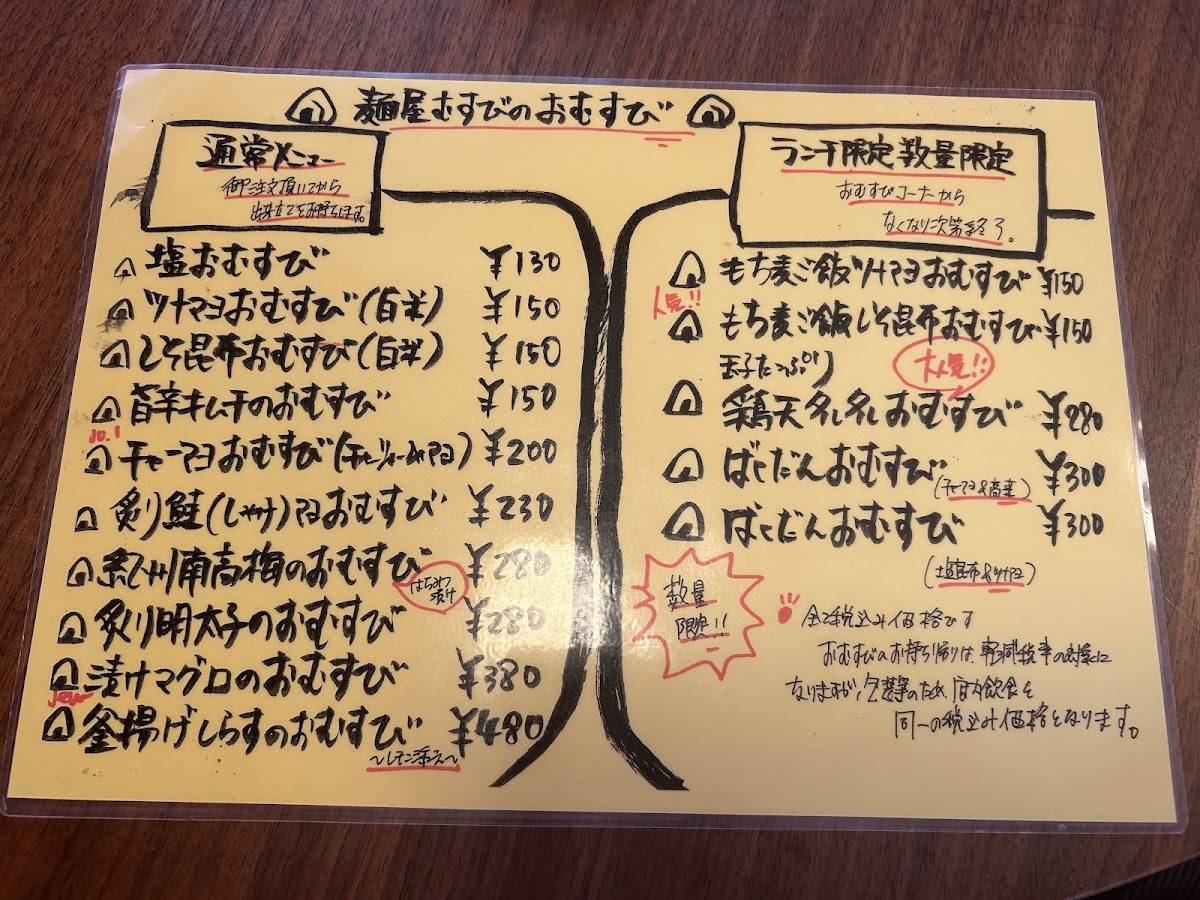 麺屋むすびのおむすび
通常メニュー
御注文頂いてから
出来立てをお持ちします。
塩おむすび ¥130
ツナマヨおむすび(白米) ¥150
しそ昆布おむすび(白米) ¥150
旨辛キムチのおむすび ¥150
no.1
チャーマヨおむすび(チャーシューみマヨ) ¥200
炙り鮭(しゃけ)マヨおむすび ¥230
紀州南高梅のおむすび ¥280
はちみつ
漬け
炙り明太子のおむすび ¥280
漬けマグロのおむすび ¥380
new
釜揚げしらすのおむすび ¥480
~レモン添え~
ランチ限定数量限定
おむすびコーナーから
なくなり次第終了。
もち麦ご飯ツナマヨおむすび ¥150
人気!!
もち麦ご飯しそ昆布おむすび ¥150
玉子たっぷり
大人気!!
鶏天タルタルおむすび ¥280
ばくだんおむすび ¥300
(チャーマヨ&高菜)
ばくだんおむすび ¥300
(塩昆布&ツナマヨ)
数量
限定!!
全て税込み価格です
おむすびのお持ち帰りは、軽減税率の対象に
なりますが、煩雑のため、店内飲食と
同一の税込み価格となります。